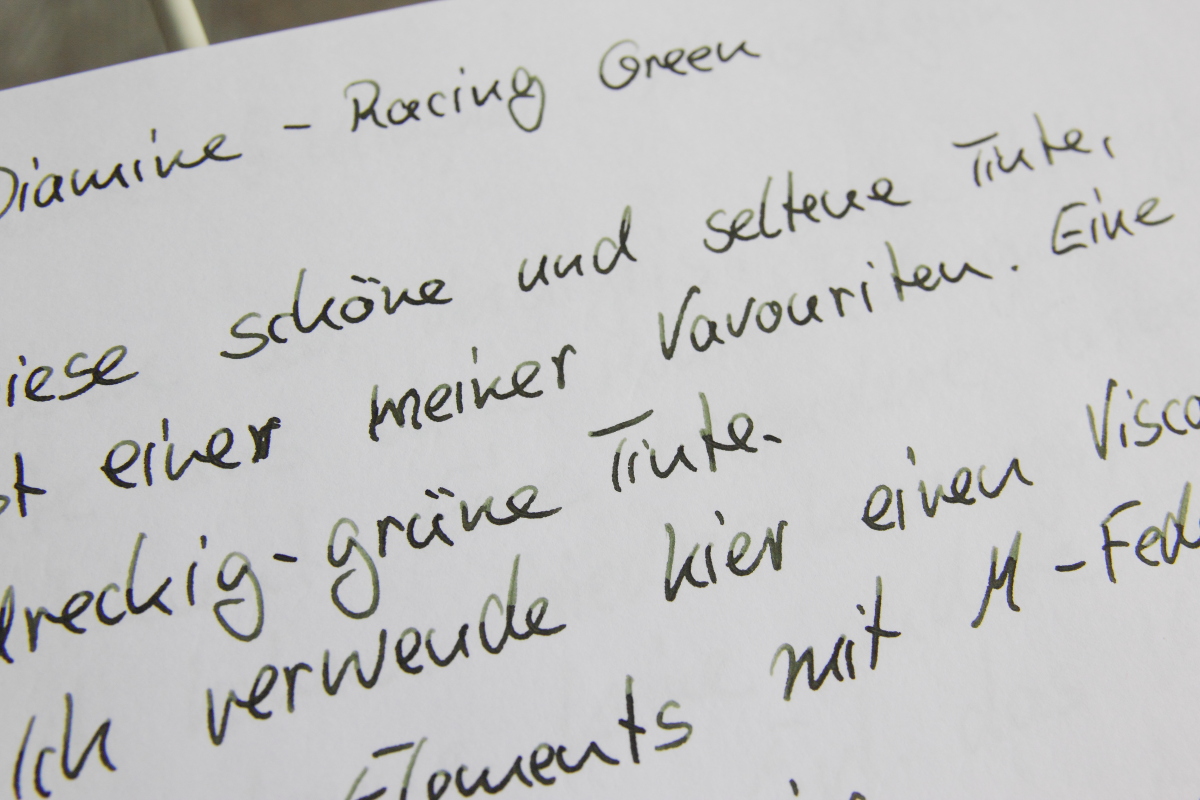 Diamine - Racing Green
iese schöne und seltene Tinte,
st einer meiner Vavouriten. Eine
dreckig-grüne Tinte.
Ich verwende hier einen Visco
Elements mit M-Fed